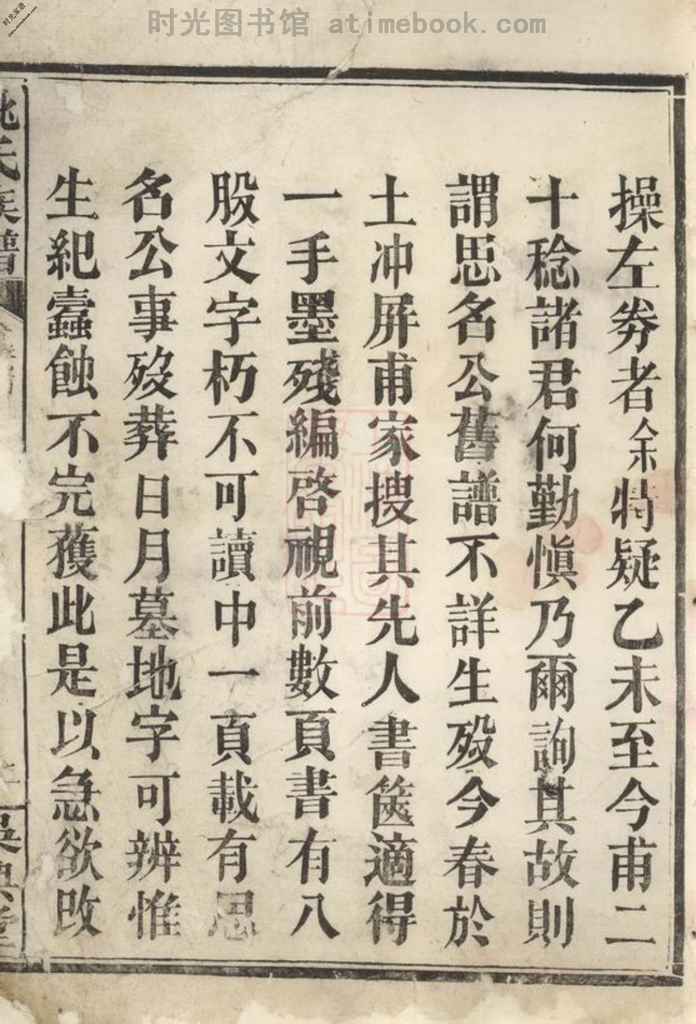 时光图书馆 atimebook.com
操左券者余特疑乙未至今甫二
十稔諸君何勤慎乃爾詢其故則
謂思名公舊譜不詳生殁今春於
土冲屏甫家搜其先人書篋適得
一手墨殘編啓視前數頁書有八
股文字朽不可讀中一頁載有思
名公事殁葬日月墓地字可辨惟
生紀蠹蝕不完獲此是以急欲改
姚氏族譜
吳興堂